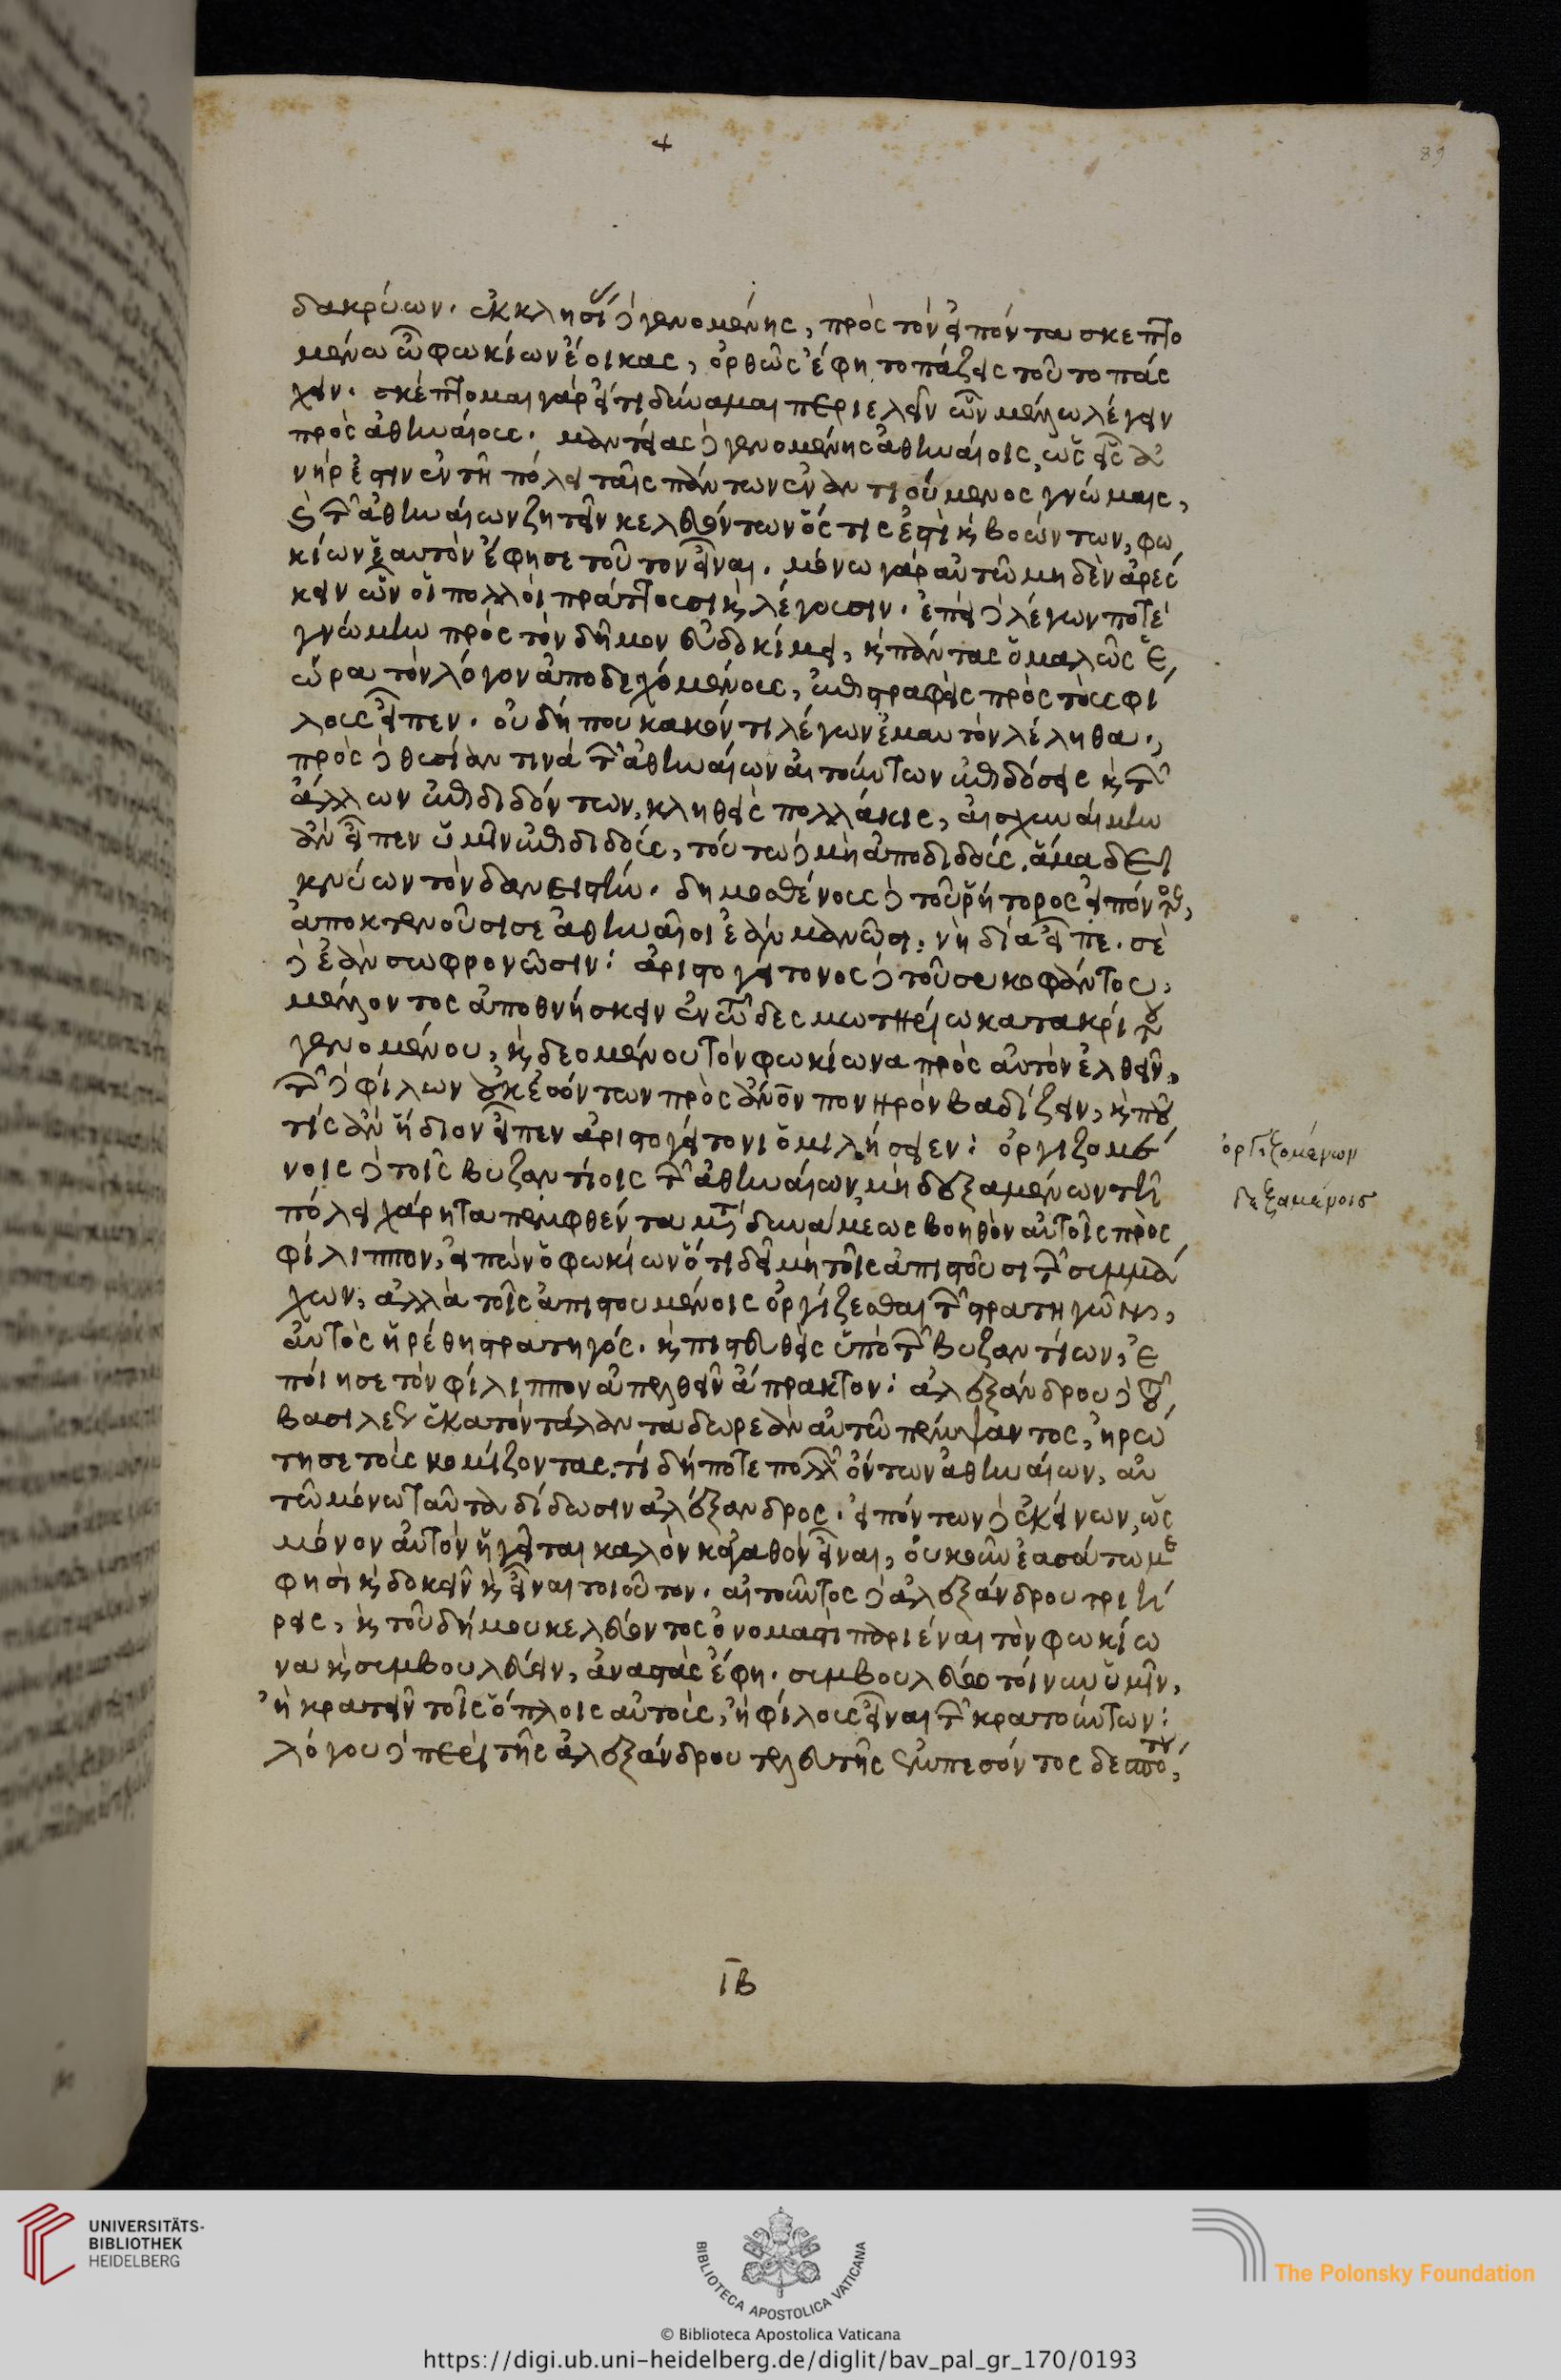 4
89
δακρύων. ἐκκλησίας δὲ γενομένης, πρὸς τὸν εἰπόντα σκεπτο
μένω ὦ φωκίων ἔοικας, ὀρθῶς ἔφη τοπάζεις τοῦτο πάσ
χειν. σκέπτομαι γὰρ εἴ τι δύναμαι περιελεῖν ὧν μέλλω λέγειν
πρὸς ἀθηναίους. μαντείας δὲ γενομένης ἀθηναίοις, ὡς εἷς ἀ
νήρ ἐστιν ἐν τῇ πόλει ταῖς πάντων ἐναντιούμενος γνώμαις,
καὶ τῶν ἀθηναίων ζητεῖν κελευόντων ὅς τις ἐστὶ καὶ βοώντων, φω
κίων ἑαυτὸν ἔφησε τοῦτον εἶναι. μόνω γὰρ αὐτῶ μηδὲν ἀρέσ
κειν ὧν οἱ πολλοὶ πράττουσι καὶ λέγουσιν. ἐπεὶ δὲ λέγων ποτὲ
γνώμην πρὸς τὸν δῆμον εὐδοκίμει, καὶ πάντας ὁμαλῶς ἑ
ώρα τὸν λόγον ἀποδεχομένους, ἐπιστραφεὶς πρὸς τοὺς φί
λους εἶπεν. οὐ δή που κακόν τι λέγων ἐμαυτὸν λέληθα.
πρὸς δὲ θυσίαν τινὰ τῶν ἀθηναίων αἰτούντων ἐπιδόσεις καὶ τῶν
ἄλλων ἐπιδιδόντων, κληθεὶς πολλάκις, αἰσχυναίμην
ἂν εἶπεν ὑμῖν ἐπιδιδοὺς, τούτω δὲ μὴ ἀποδιδοὺς, ἅμα δει
κνύων τὸν δανειστήν. δημοσθένους δὲ τοῦ ῥήτορος εἰπόντος,
ἀποκτενοῦσί σε ἀθηναῖοι ἐὰν μανῶσι, νὴ δία εἶπε. σὲ
δὲ ἐὰν σωφρονῶσιν: ἀριστογείτονος δὲ τοῦ συκοφάντου,
μέλλοντος ἀποθνήσκειν ἐν τῶ δεσμωτηρίω κατακρίτου
γενομένου, καὶ δεομένου τὸν φωκίωνα πρὸς αὐτὸν ἐλθεῖν,
τῶν δὲ φίλων οὐκ ἐώντων πρὸς ἄνον πονηρὸν βαδίζειν, καὶ ποῦ
τίς ἂν ἥδιον εἶπεν ἀριστογείτονι ὁμιλήσειεν: ὀργιζομέ
νοις δὲ τοῖς βυζαντίοις τῶν ἀθηναίων, μὴ δεξαμένων τῆ
πόλει χάρητα πεμφθέντα μετὰ δυνάμεως βοηθὸν αὐτοῖς πρὸς
φίλιππον, εἰπὼν ὁ φωκίων ὅτι δεῖ μὴ τοῖς ἀπιστοῦσι τῶν συμμά
χων, ἀλλὰ τοῖς ἀπιστουμένοις ὀργίζεσθαι τῶν στρατηγῶν,
αὐτὸς ἡρέθη στρατηγός. καὶ πιστευθεὶς ὑπὸ τῶν βυζαντίων, ἐ
ποίησε τὸν φίλιππον ἀπελθεῖν ἄπρακτον: ἀλεξάνδρου δὲ τοῦ
βασιλέως ἑκατὸν τάλαντα δωρεὰν αὐτῶ πέμψαντος, ἠρώ
τησε τοὺς κομίζοντας, τί δήποτε πολλῶν ὄντων ἀθηναίων, αὐ
τῶ μόνω ταῦτα δίδωσιν ἀλέξανδρος. εἰπόντων δὲ ἐκείνων, ὡς
μόνον αὐτὸν ἡγεῖται καλὸν κἀγαθὸν εἶναι, οὐκοῦν ἐασάτω με
φησὶ καὶ δοκεῖν καὶ εἶναι τοιοῦτον. αἰτοῦντος δὲ ἀλεξάνδρου τριή
ρεις, καὶ τοῦ δήμου κελεύοντος ὀνομαστὶ παριέναι τὸν φωκίω
να καὶ συμβουλεύειν, ἀναστὰς ἔφη. συμβουλεύω τοίνυν ὑμῖν,
ἢ κρατεῖν τοῖς ὅπλοις αὐτοὺς, ἢ φίλους εἶναι τῶν κρατούντων:
λόγου δὲ περὶ τῆς ἀλεξάνδρου τελευτῆς ἐμπεσόντος δεσπό,
ὀργιζομένων
δεξαμένοις
ΙΒ
UNIVERSITÄTS-
BIBLIOTHEK
HEIDELBERG
BIBLIOTECA APOSTOLICA VATICANA
© Biblioteca Apostolica Vaticana
The Polonsky Foundation
https://digi.ub.uni-heidelberg.de/diglit/bav_pal_gr_170/0193